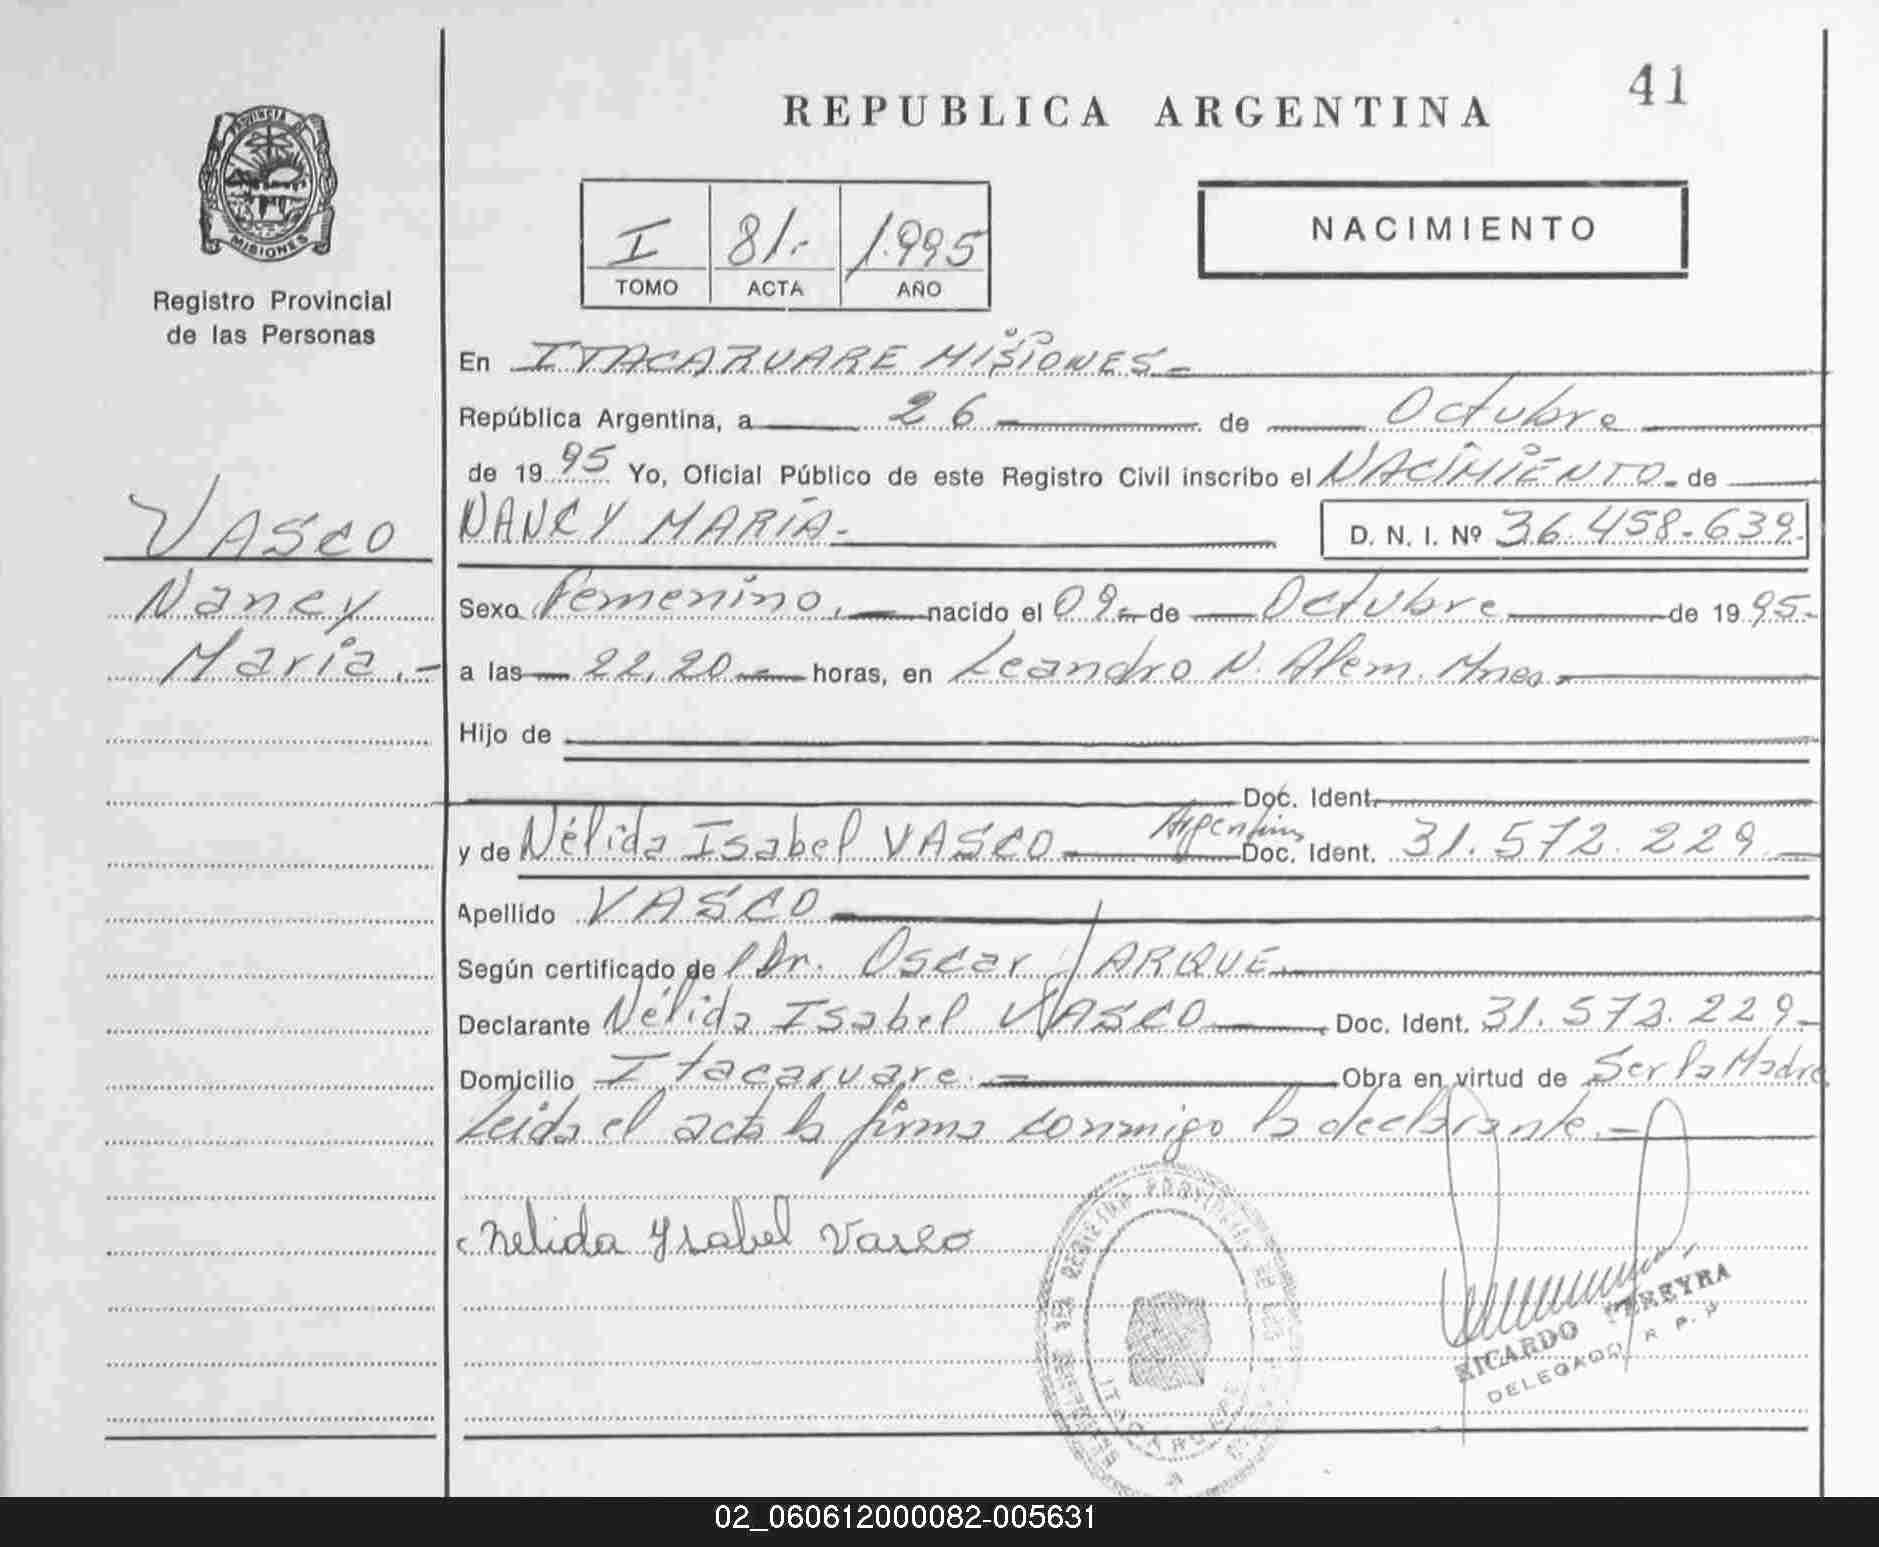 41
REPUBLICA ARGENTINA
PROVINCIA DE
MISIONES
Registro Provincial
de las Personas
NACIMIENTO
I 81.- 1.995
TOMO ACTA AÑO
En ITACARUARE MISIONES.-
República Argentina, a 26 de Octubre
de 1995 Yo, Oficial Público de este Registro Civil inscribo el NACIMIENTO.- de
VASCO
Nancy
Maria.-
NANCY MARIA.- D. N. I. Nº 36.458.639.
Sexo Femenino.- nacido el 09.- de Octubre de 1995.-
a las 22,20.- horas, en Leandro N. Alem. Mnes.-
Hijo de
Doc. Ident.
y de Nélida Isabel VASCO Argentina Doc. Ident. 31.572.229.-
Apellido VASCO
Según certificado de Dr. Oscar JARQUE.
Declarante Nélida Isabel VASCO Doc. Ident. 31.572.229.-
Domicilio Itacaruare.- Obra en virtud de Ser la Madre
Leida el acta la firma conmigo la declarante.-
Nelida Ysabel Vasco
REGISTRO PROVINCIAL DE LAS
ITACARUARE
RICARDO PEREYRA
DELEGADO R. P. P
02_060612000082-005631